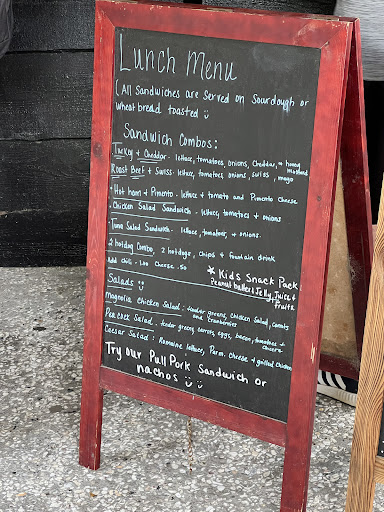 Lunch Menu
(All Sandwiches are Served on Sourdough or
wheat bread toasted
Sandwich Combos:
Turkey + Cheddar - lettuce, tomatoes, onions, Cheddar, honey mustard
Roast Beef + Swiss - lettuce, tomatoes, onions, swiss, mayo
Hot ham & Pimento - lettuce + tomato and Pimento Cheese
Chicken Salad Sandwich - lettuce, tomatoes + onions
Tuna Salad Sandwich - lettuce, tomatoes, + onions.
2 hotdog Combo, 2 hotdogs, Chips + fountain drink
Add chili - 1.00 Cheese - 50
* Kids Snack Pack
Peanut butter & Jelly, Juice +
fruits
Salads
Magnolia Chicken Salad: tender greens, Chicken Salad, Carrots
and Cranberries
Peacock Salad: tender greens, carrots, eggs, bacon, tomatoes +
Caesar Salad: Romaine lettuce, Parm. Cheese + grilled chicken
Try our Pull Pork Sandwich or
nachos